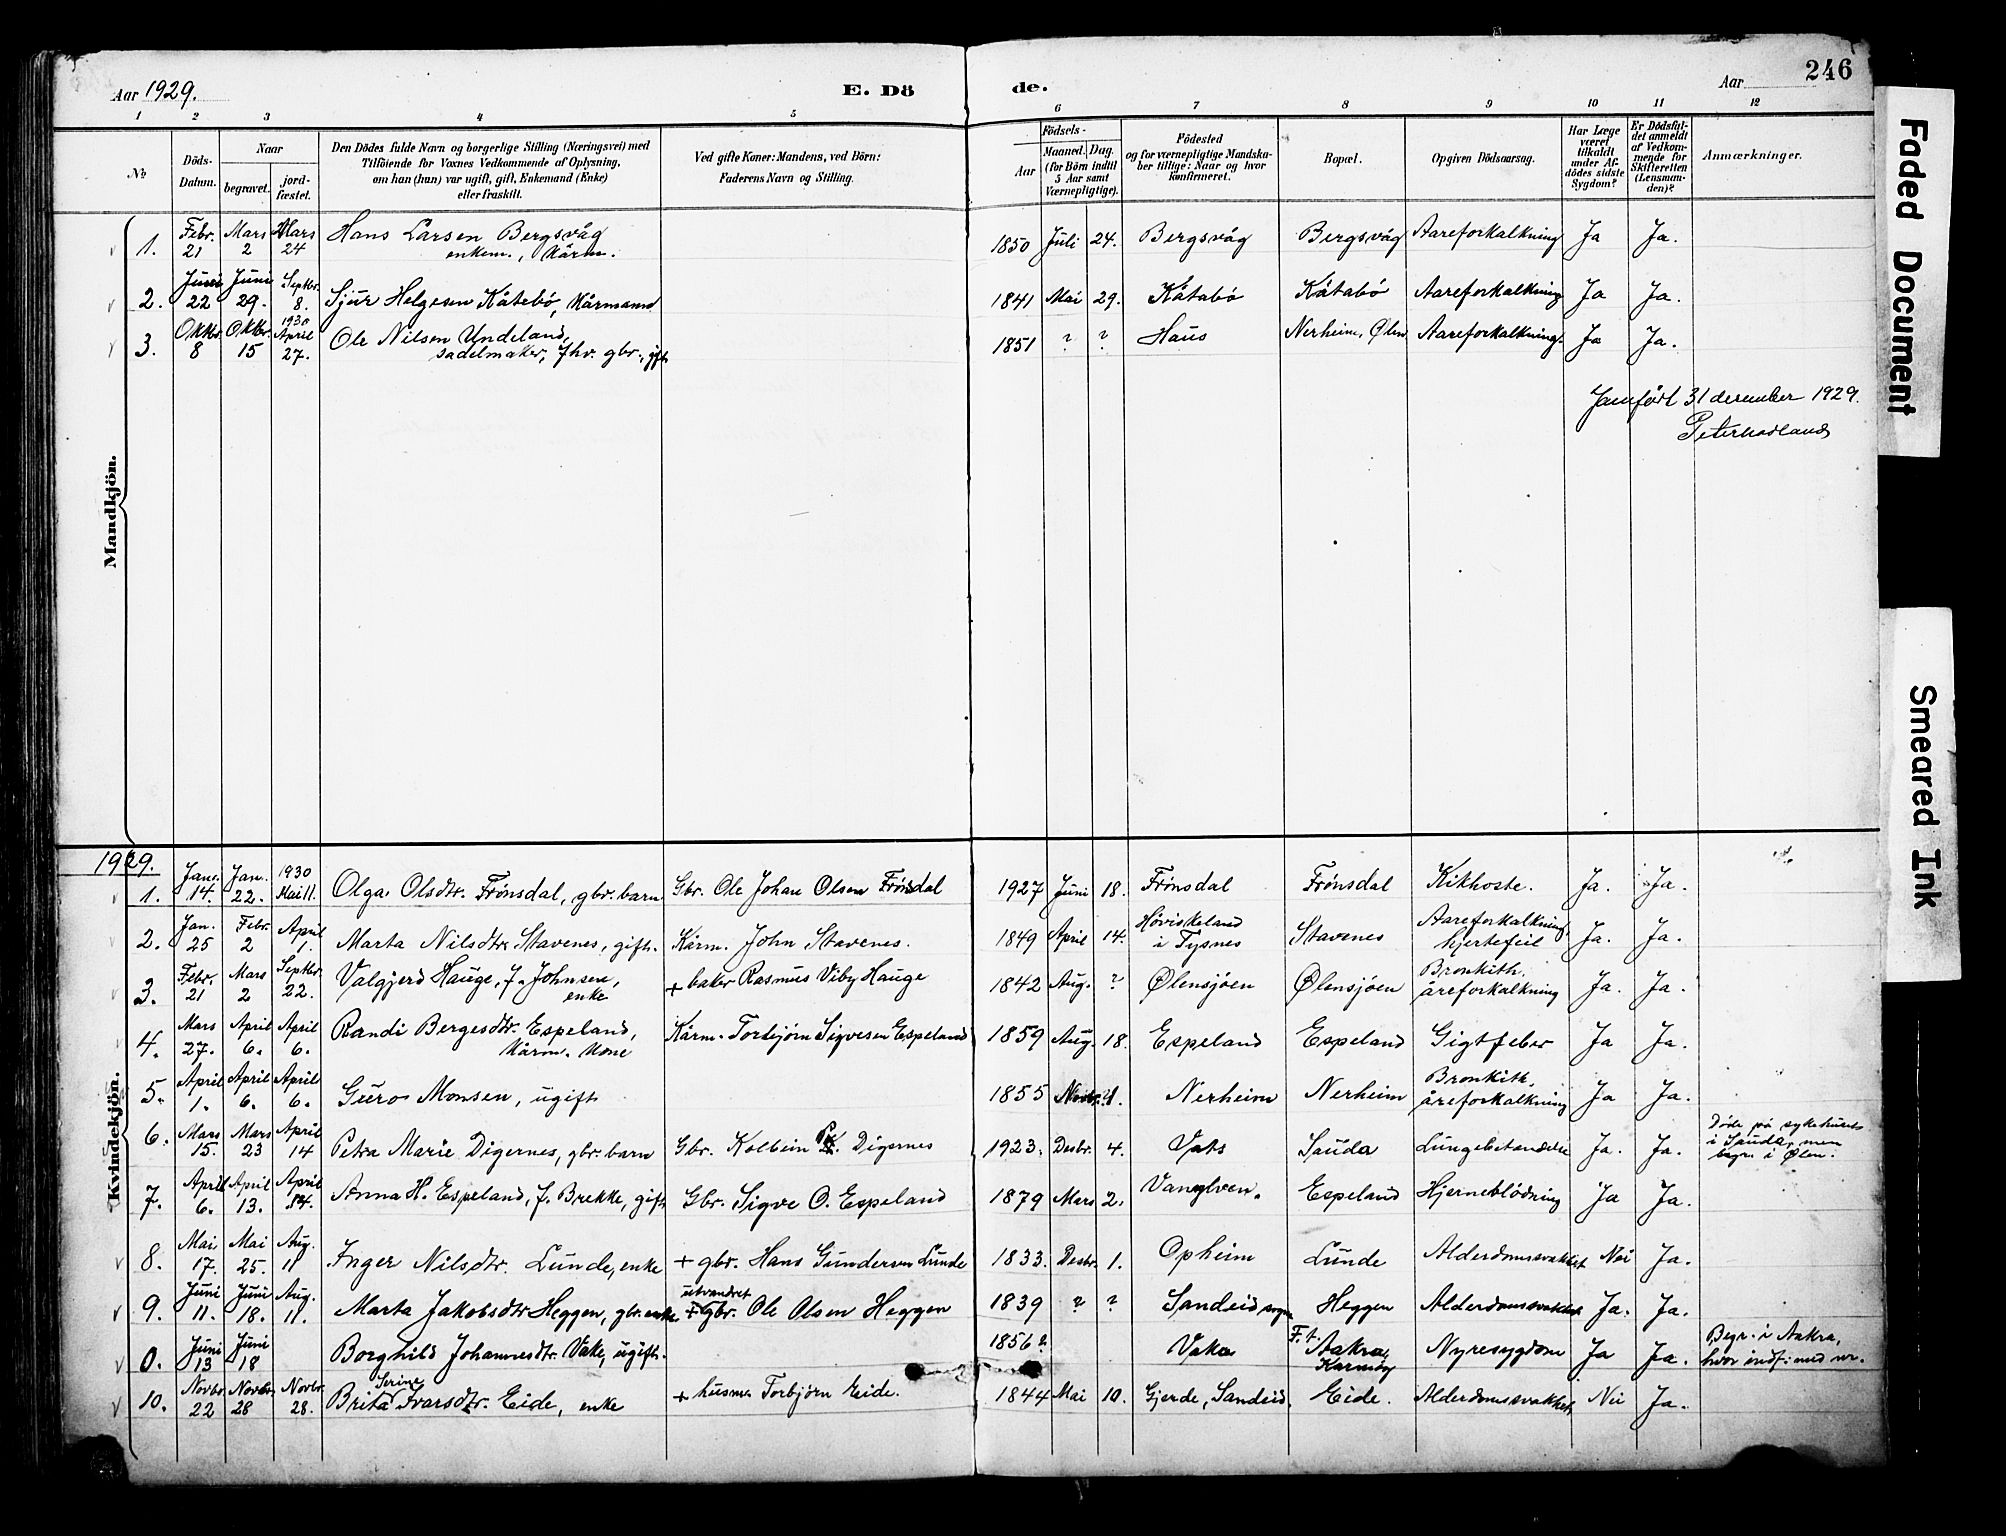 Aar 1929.
E. Dö
de.
Aar 246
1 2 3 4 5 6 7 8 9 10 11 12
No
Döds-Datum.
Naar
begravet.
jord-fæstet.
Den Dödes fulde Navn og borgerlige Stilling (Næringsvei) med
Tilföiende for Voxnes Vedkommende af Oplysning,
om han (hun) var ugift, gift, Enkemand (Enke)
eller fraskilt.
Ved gifte Koner: Mandens, ved Börn:
Faderens Navn og Stilling.
Födsels-
Aar
Maaned. Dag.
(for Börn indtil
5 Aar samt
Værnepligtige).
Födested
og for værnepligtige Mandska-
ber tillige: Naar og hvor
konfirmeret.
Bopæl.
Opgiven Dödsaarsag.
Har Læge
været
tilkaldt
under Af-
dödes sidste
Sygdom?
Er Dödsfal-
det anmeldt
af Vedkom-
mende for
Skifteretten
(Lensman-
den)?
Anmærkninger.
Mandkjön.
1. Febr. 21 Mars 2 Mars 24 Hans Larsen Bergsvåg enkem., Kårm. 1850 Juli 24. Bergsvåg Bergsvåg Aareforkalkning Ja Ja.
2. Juni 22 Juni 29. Septbr. 8. Sjur Helgesen Kåtebö, Kårmand 1841 Mai 29. Kåtabö Kåtabö Aareforkalkning Ja Ja.
3. Oktbr. 8 Oktbr. 15 1930 April 27. Ole Nilsen Undeland, sadelmaker, fhv. gbr., gift 1851 ? ? Haus Nerheim, Ølen Aareforkalkning. Ja Ja.
Jamført 31 desember 1929.
Peter Hadland
Kvindekjön.
1929.
1. Jan. 14. Jan. 22. 1930 Mai 11. Olga Olsdtr. Frönsdal, gbr. barn Gbr. Ole Johan Olsen Frönsdal 1927 Juni 18. Frönsdal Frönsdal Kikhoste. Ja. Ja.
2. Jan. 25 Febr. 2 April 1. Marta Nilsdtr. Stavenes, gift. Kårm. John Stavenes. 1849 April 14. Høviskeland i Tysnes Stavenes Aareforkalkning, hjertefeil Ja. Ja.
3. Febr. 21 Mars 2 Septbr. 22. Valgjerd Hauge, f. Johnsen, enke + baker Rasmus Viby Hauge 1842 Aug. ? Ølensjöen Ølensjöen Bronkith. åreforkalkning Ja. Ja.
4. Mars 27. April 6. April 6. Randi Bergesdtr. Espeland, Kårm. Kone Kårm. Torbjörn Sigvesen Espeland 1859 Aug. 18. Espeland Espeland Gigtfeber Ja Ja.
5. April 1. April 6. April 6. Guro Monsen, ugift 1855 Novbr. 21. Nerheim Nerheim Bronkith, åreforkalkning Ja Ja.
6. Mars 15. Mars 23 April 14 Petra Marie Digernes, gbr. barn Gbr. Kolbein Digernes 1923. Desbr. 4. Vats Sauda Lungebetændelse Ja. Ja. Döde på sykehuset i Sauda, men begr. i Ølen.
7. April 6. April 13. April 14. Anna H. Espeland, f. Brekke, gift Gbr. Sigve O. Espeland 1879 Mars 2. Vanylven. Espeland Hjerneblödning Ja Ja.
8. Mai 17. Mai 25. Aug. 11 Inger Nilsdtr. Lunde, enke + gbr. Hans Gundersen Lunde 1833. Desbr. 1. Opheim Lunde Alderdomssvakhet Nei Ja.
9. Juni 11. Juni 18. Aug. 11. Marta Jakobsdtr Heggen, gbr. enke utvandret + Gbr. Ole Olsen Heggen 1839 ? ? Sandeid sogn Heggen Alderdomssvakhet Ja. Ja.
0. Juni 13 Juni 18 Borghild Johannesdtr. Vake, ugift. 1856? Vaka F.t. Aakra, Karmöy Nyresygdom Ja Ja. Begr. i Aakra, hvor indf. med nr.
10. Novbr 22 Novbr. 28 Novbr. 28. Brita Serine Ivarsdtr. Eide, enke + husm. Torbjörn Eide. 1844 Mai 10. Gjerde, Sandeid. Eide. Alderdomssvakhet, Nei Ja.
Faded Document
Smeared Ink